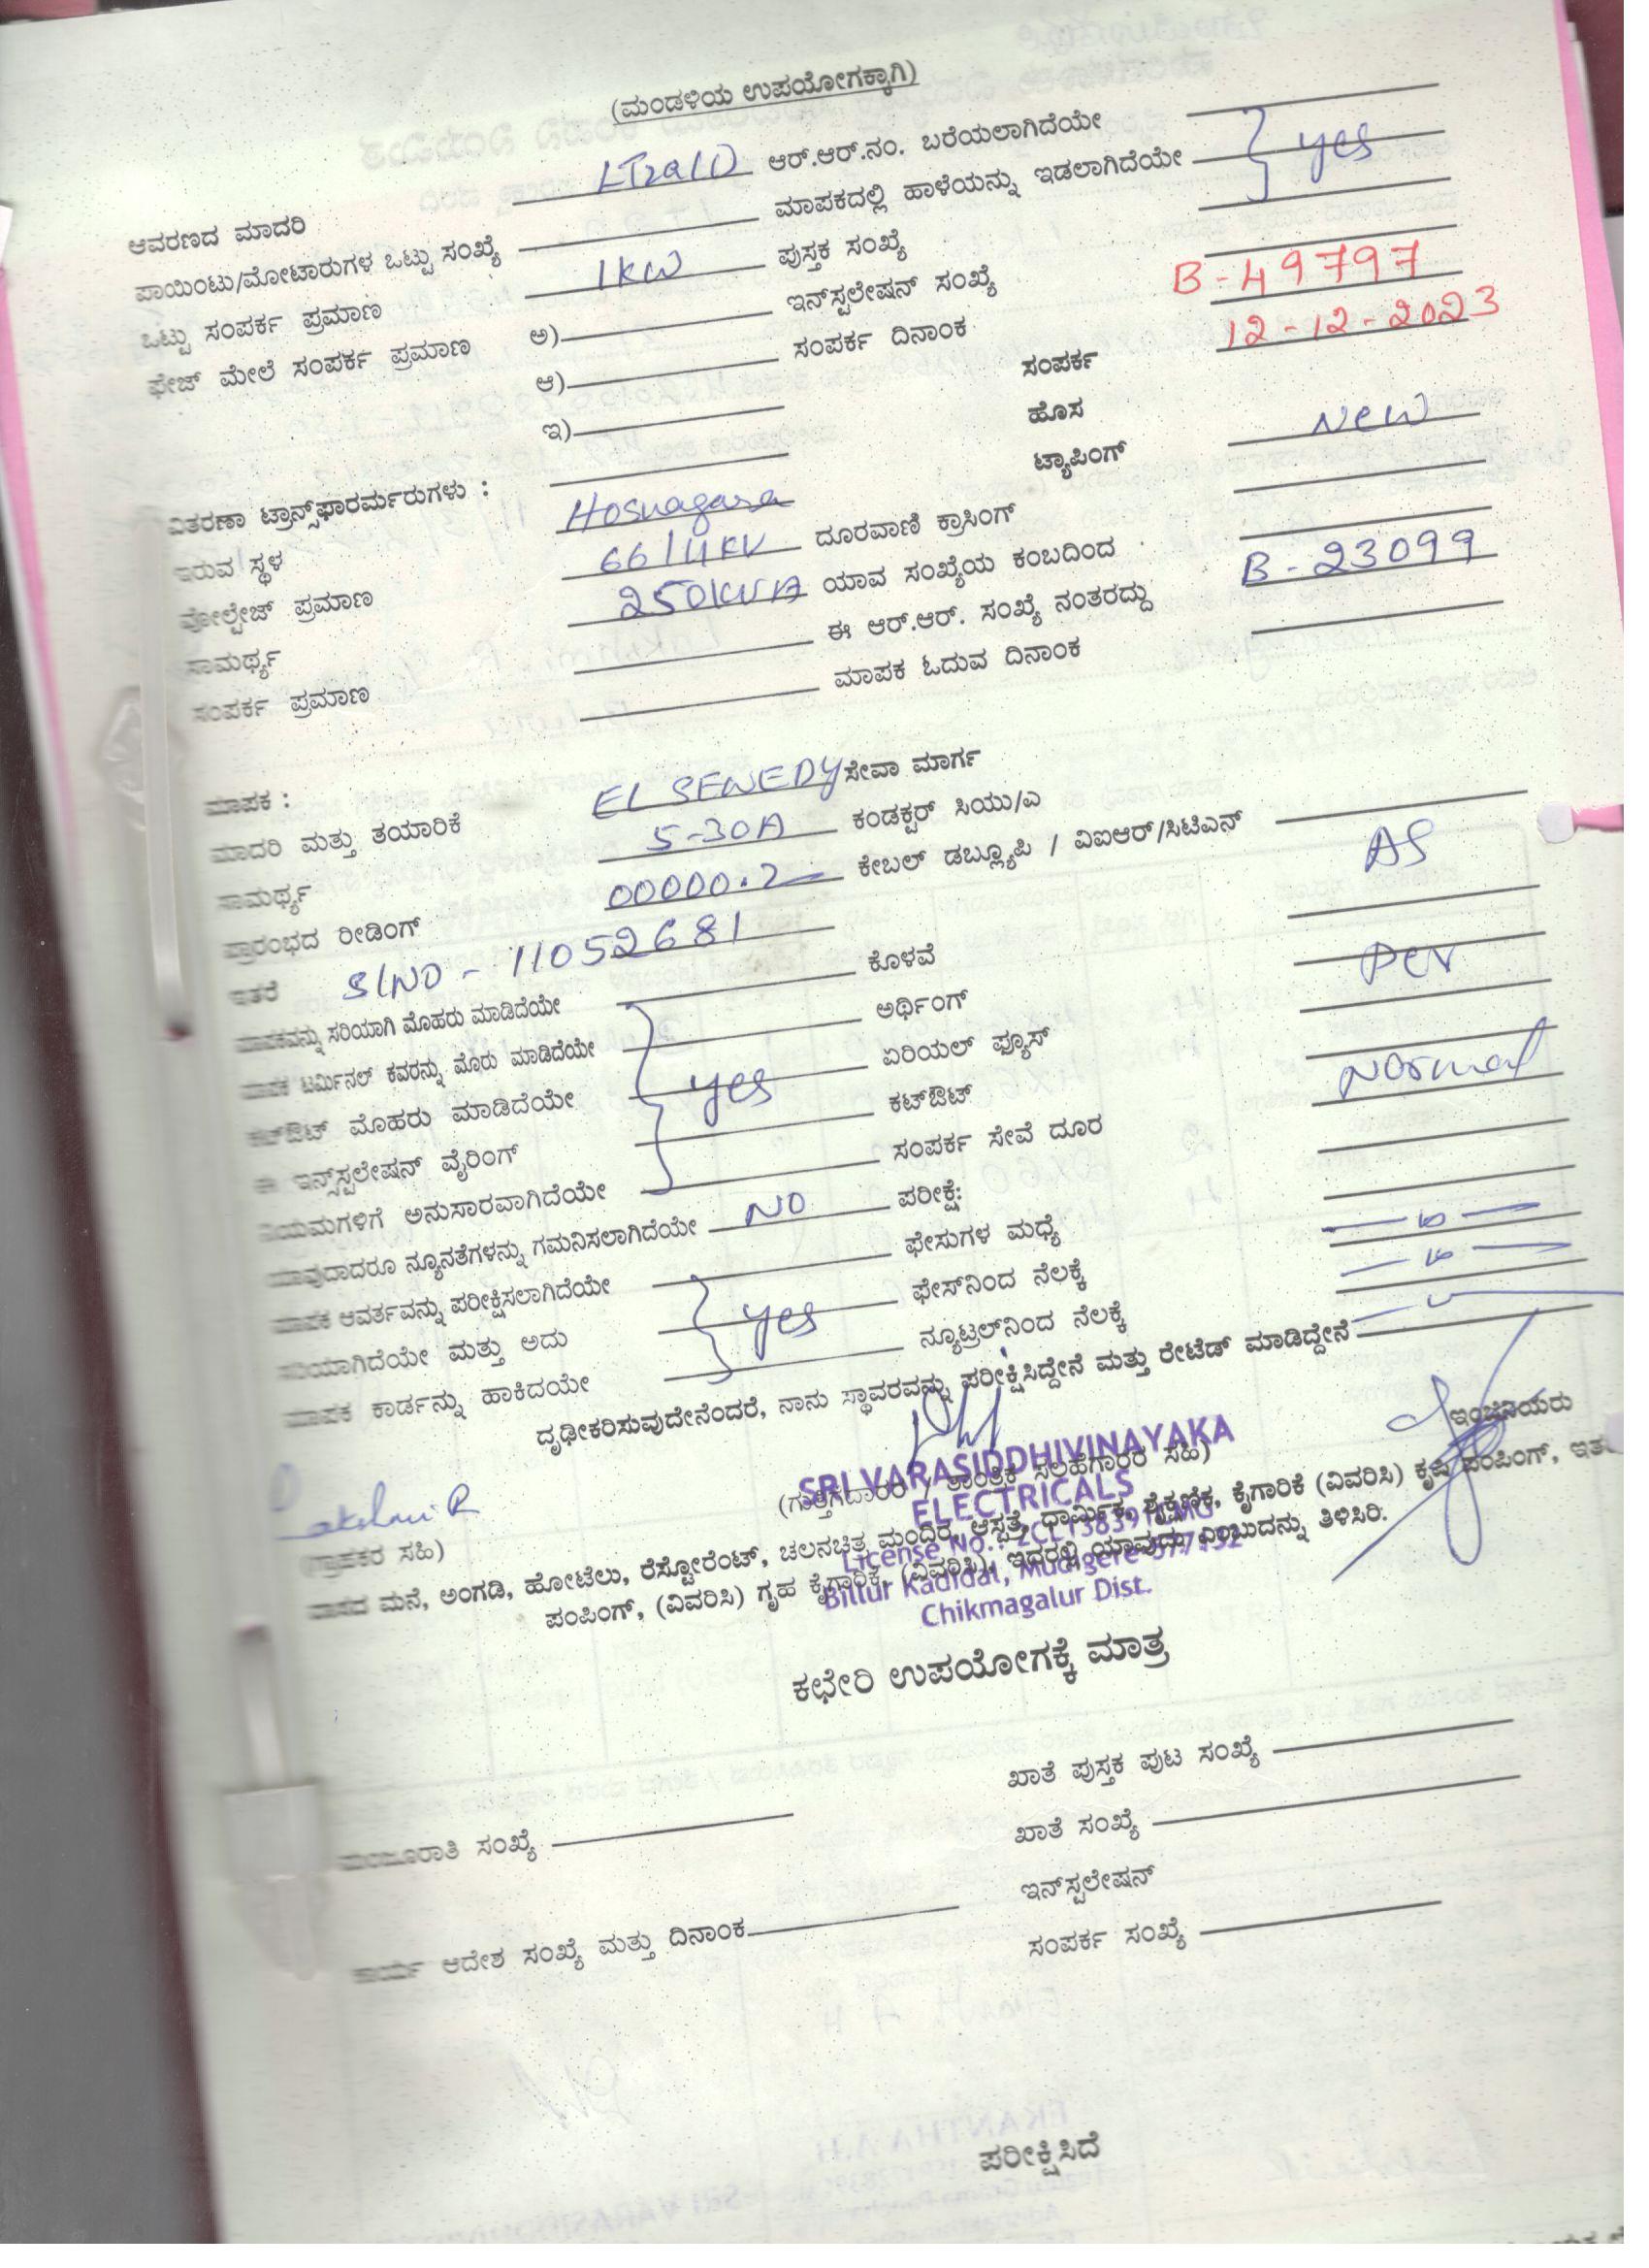 (ಮಂಡಳಿಯ ಉಪಯೋಗಕ್ಕಾಗಿ)
ಆವರಣದ ಮಾದರಿ LT2a(1) ಆರ್.ಆರ್.ನಂ. ಬರೆಯಲಾಗಿದೆಯೇ
ಪಾಯಿಂಟು/ಮೋಟಾರುಗಳ ಒಟ್ಟು ಸಂಖ್ಯೆ ಮಾಪಕದಲ್ಲಿ ಹಾಳೆಯನ್ನು ಇಡಲಾಗಿದೆಯೇ } yes
ಒಟ್ಟು ಸಂಪರ್ಕ ಪ್ರಮಾಣ 1KW ಪುಸ್ತಕ ಸಂಖ್ಯೆ
ಫೇಜ್ ಮೇಲೆ ಸಂಪರ್ಕ ಪ್ರಮಾಣ ಅ) ಇನ್‌ಸ್ಟಲೇಷನ್ ಸಂಖ್ಯೆ B-49797
ಆ) ಸಂಪರ್ಕ ದಿನಾಂಕ 12-12-2023
ಇ) ಸಂಪರ್ಕ
ಹೊಸ New
ವಿತರಣಾ ಟ್ರಾನ್ಸ್‌ಫಾರರ್ಮರುಗಳು : ಟ್ಯಾಪಿಂಗ್
ಇರುವ ಸ್ಥಳ Hosnagara
ವೋಲ್ಟೇಜ್ ಪ್ರಮಾಣ 66/11KV ದೂರವಾಣಿ ಕ್ರಾಸಿಂಗ್
ಸಾಮರ್ಥ್ಯ 250KVA ಯಾವ ಸಂಖ್ಯೆಯ ಕಂಬದಿಂದ
ಸಂಪರ್ಕ ಪ್ರಮಾಣ ಈ ಆರ್.ಆರ್. ಸಂಖ್ಯೆ ನಂತರದ್ದು B-23099
ಮಾಪಕ ಓದುವ ದಿನಾಂಕ
ಮಾಪಕ :
ಮಾದರಿ ಮತ್ತು ತಯಾರಿಕೆ EL SEWEDY ಸೇವಾ ಮಾರ್ಗ
ಸಾಮರ್ಥ್ಯ 5-30A ಕಂಡಕ್ಟರ್ ಸಿಯು/ಎ
ಪ್ರಾರಂಭದ ರೀಡಿಂಗ್ 00000.2 ಕೇಬಲ್ ಡಬ್ಲ್ಯೂಪಿ / ವಿಐಆರ್/ಸಿಟಿಎನ್ AS
ಇತರೆ Sl NO - 11052681
ಮಾಪಕವನ್ನು ಸರಿಯಾಗಿ ಮೊಹರು ಮಾಡಿದೆಯೇ ಕೊಳವೆ Per
ಮಾಪಕ ಟರ್ಮಿನಲ್ ಕವರನ್ನು ಮೊರು ಮಾಡಿದೆಯೇ ಅರ್ಥಿಂಗ್
ಕಟ್‌ಔಟ್ ಮೊಹರು ಮಾಡಿದೆಯೇ } yes ಏರಿಯಲ್ ಫ್ಯೂಸ್ Normal
ಈ ಇನ್ಸ್‌ಸ್ಟಲೇಷನ್ ವೈರಿಂಗ್ ಕಟ್‌ಔಟ್
ನಿಯಮಗಳಿಗೆ ಅನುಸಾರವಾಗಿದೆಯೇ ಸಂಪರ್ಕ ಸೇವೆ ದೂರ
ಯಾವುದಾದರೂ ನ್ಯೂನತೆಗಳನ್ನು ಗಮನಿಸಲಾಗಿದೆಯೇ NO ಪರೀಕ್ಷೆ:
ಮಾಪಕ ಆವರ್ತವನ್ನು ಪರೀಕ್ಷಿಸಲಾಗಿದೆಯೇ ಫೇಸುಗಳ ಮಧ್ಯೆ
ಸರಿಯಾಗಿದೆಯೇ ಮತ್ತು ಅದು } yes ಫೇಸ್‌ನಿಂದ ನೆಲಕ್ಕೆ
ಮಾಪಕ ಕಾರ್ಡನ್ನು ಹಾಕಿದಯೇ ನ್ಯೂಟ್ರಲ್‌ನಿಂದ ನೆಲಕ್ಕೆ
ದೃಢೀಕರಿಸುವುದೇನೆಂದರೆ, ನಾನು ಸ್ಥಾವರವನ್ನು ಪರೀಕ್ಷಿಸಿದ್ದೇನೆ ಮತ್ತು ರೇಟೆಡ್ ಮಾಡಿದ್ದೇನೆ
ಇಂಜಿನಿಯರು
SRI VARASIDDHIVINAYAKA
(ಗುತ್ತಿಗೆದಾರರ / ತಾಂತ್ರಿಕ ಸಲಹೆಗಾರರ ಸಹಿ)
ELECTRICALS
(ಗ್ರಾಹಕರ ಸಹಿ)
ವಾಸದ ಮನೆ, ಅಂಗಡಿ, ಹೋಟೆಲು, ರೆಸ್ಟೋರೆಂಟ್, ಚಲನಚಿತ್ರ ಮಂದಿರ, ಆಸ್ಪತ್ರೆ, ಧಾರ್ಮಿಕ, ಶೈಕ್ಷಣಿಕ, ಕೈಗಾರಿಕೆ (ವಿವರಿಸಿ) ಕೃಷಿ ಪಂಪಿಂಗ್,
License No.:
ಪಂಪಿಂಗ್, (ವಿವರಿಸಿ) ಗೃಹ ಕೈಗಾರಿಕೆ, (ವಿವರಿಸಿ), ಇದರಲ್ಲಿ ಯಾವುದು ಎಂಬುದನ್ನು ತಿಳಿಸಿರಿ:
Billur Kadidal, Mudigere-577132
Chikmagalur Dist.
ಕಛೇರಿ ಉಪಯೋಗಕ್ಕೆ ಮಾತ್ರ
ಖಾತೆ ಪುಸ್ತಕ ಪುಟ ಸಂಖ್ಯೆ
ಮಂಜೂರಾತಿ ಸಂಖ್ಯೆ ಖಾತೆ ಸಂಖ್ಯೆ
ಇನ್‌ಸ್ಟಲೇಷನ್
ಕಾರ್ಯ ಆದೇಶ ಸಂಖ್ಯೆ ಮತ್ತು ದಿನಾಂಕ ಸಂಪರ್ಕ ಸಂಖ್ಯೆ
ಪರೀಕ್ಷಿಸಿದೆ